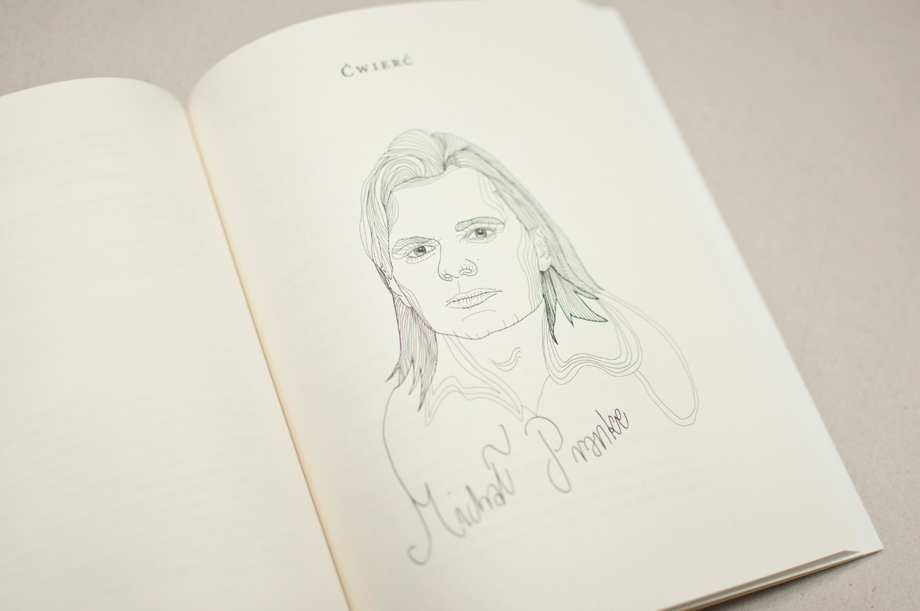 Ćwierć
Michał Pranke